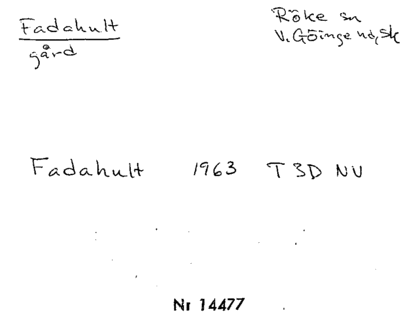 Fadahult
gård
Röke sn
V. Göinge hd, Sk
Fadahult 1963 T3D NV
Nr 14477